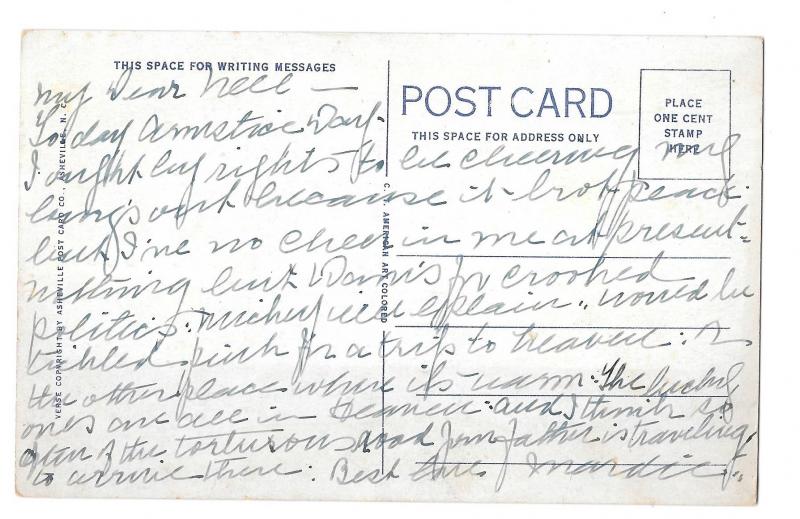 THIS SPACE FOR WRITING MESSAGES
POST CARD
THIS SPACE FOR ADDRESS ONLY
PLACE
ONE CENT
STAMP
HERE
VERSE COPYRIGHT BY ASHEVILLE POST CARD CO., ASHEVILLE, N. C.
C. T. AMERICAN ART COLORED
My Dear Nell —
To day Armstice Day-
I ought by rights to be cheering my
lungs out because it brot peace.
but I've no cheer in me at present-
nothing but Damis for crooked
politics. Micherfield explain, would be
tickled pink for a trip to heaven: or
the other place where its warm: The lucky
ones are all in Heaven: and I think so
often of the torturous road your father is traveling,
to arrive there: Best love Mardie.